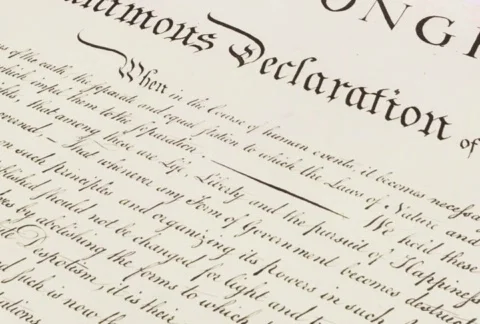 ONG
animous Declaration of
When in the Course of human events, it becomes necessa
of the earth, the separate and equal station to which the Laws of Nature and
which impel them to the separation. We hold these
that among these are Life, Liberty and the pursuit of Happiness
That whenever any Form of Government becomes destruct
on such principles and organizing its powers in such
should not be changed for light and
by abolishing the forms to which
Despotism, it is their
such is now th